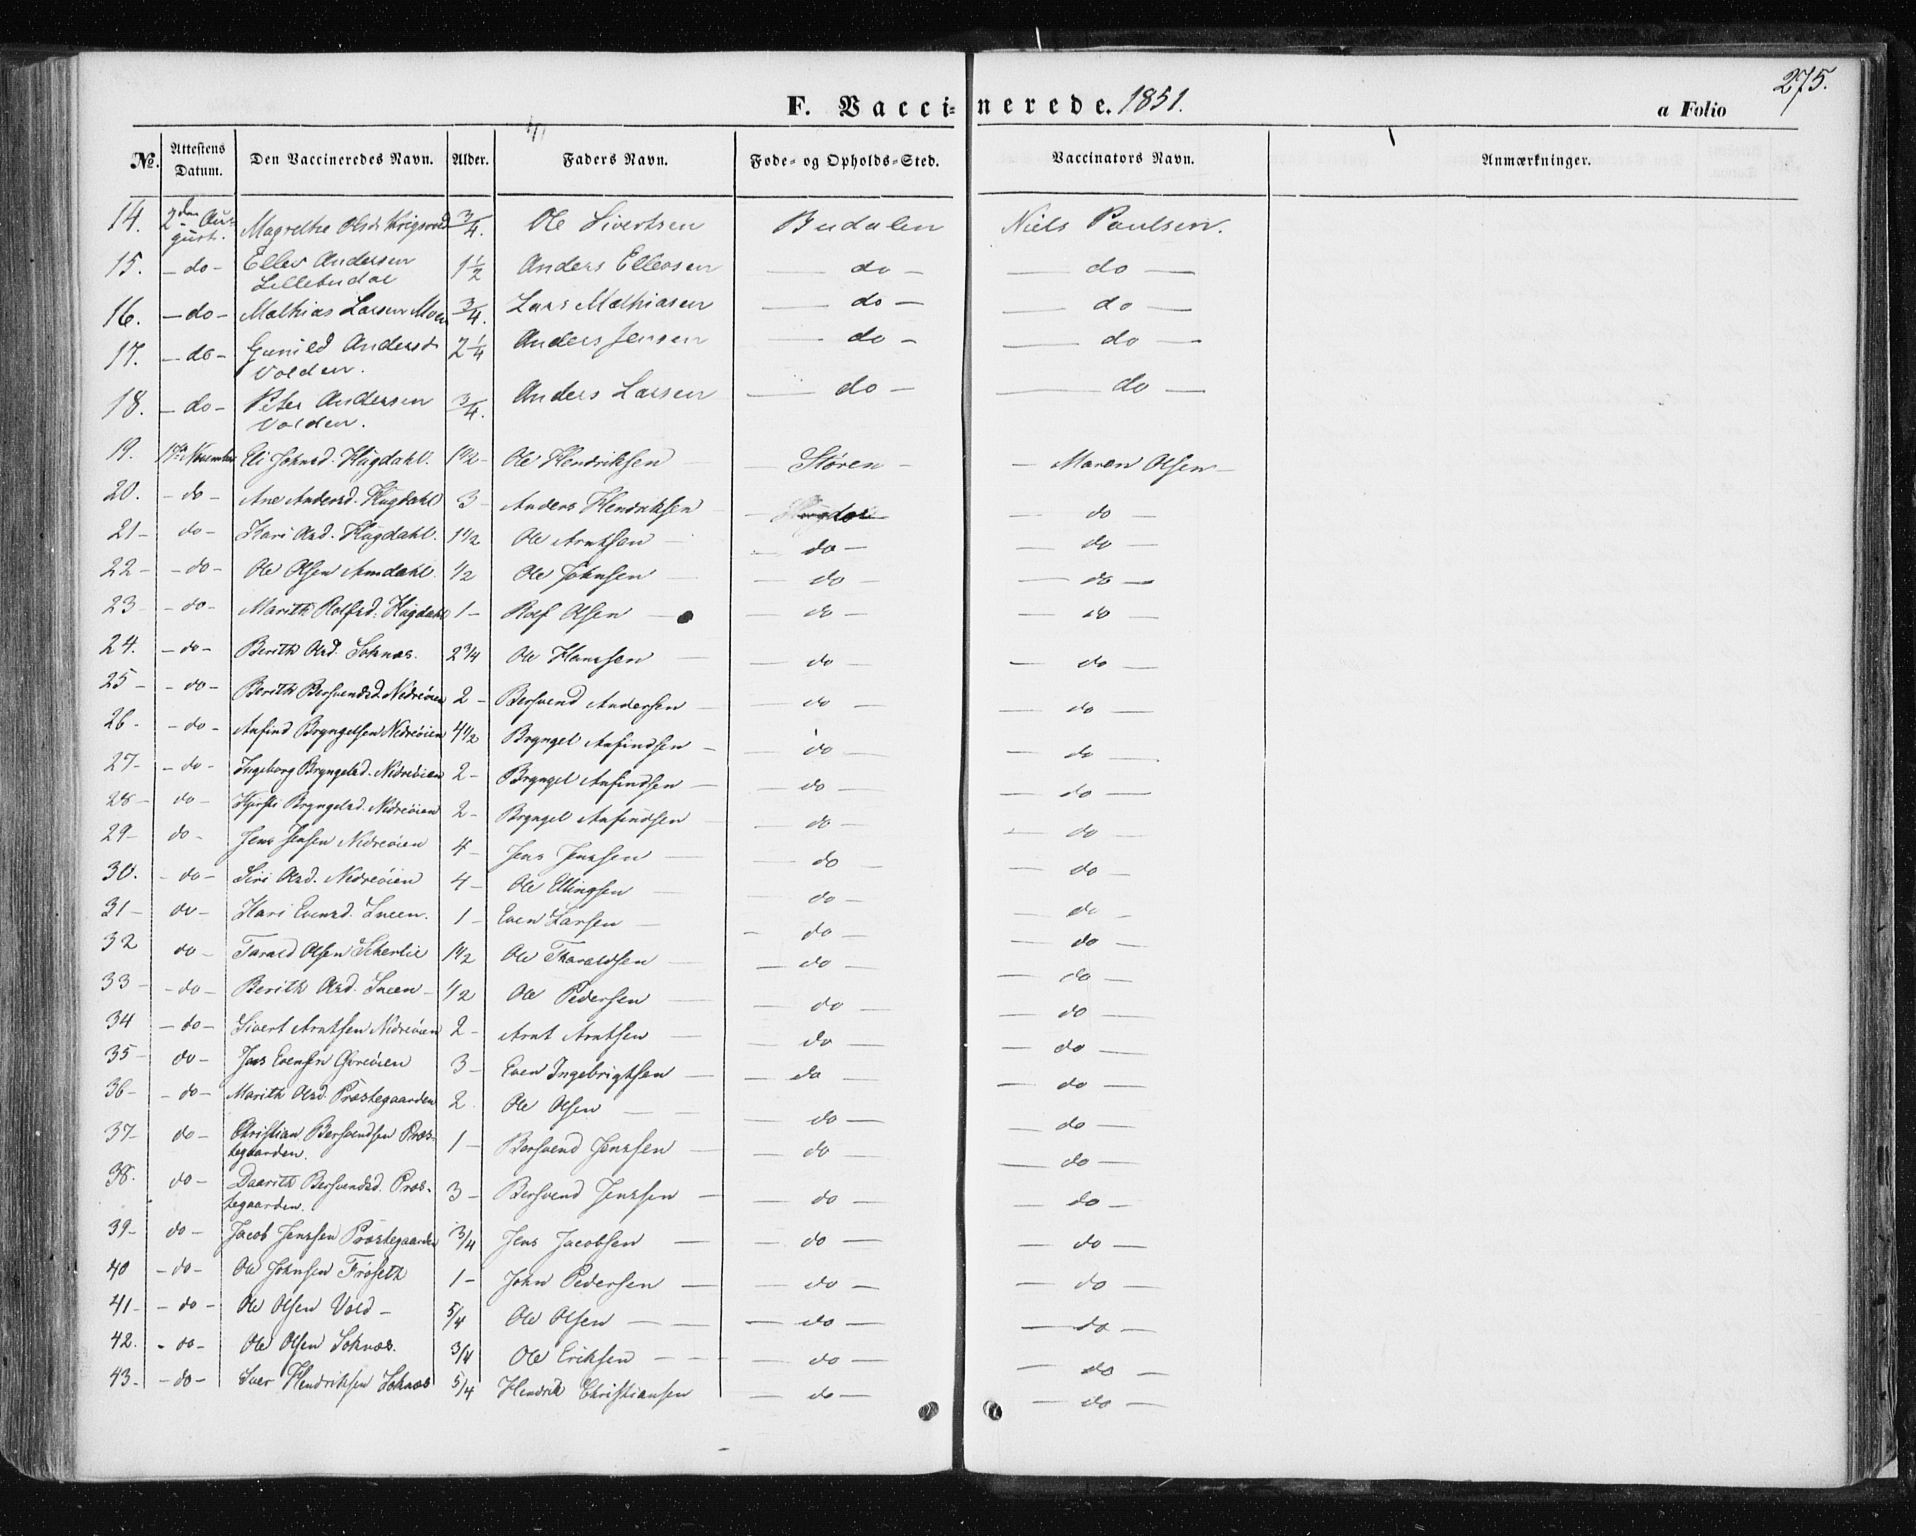 275.
F. Vaccinerede. 1851.
a Folio
№. Attestens Datum. Den Vaccineredes Navn. Alder. Faders Navn. Føde- og Opholds-Sted. Vaccinators Navn. Anmærkninger.
14. 2den August. Magrethe Olsd. 3/4. Ole Sivertsen Budalen Niels Paulsen.
15. - do - Ellev Andersen Lillebudal 1 1/2 Anders Ellevsen - do - - do -
16. - do - Mathias Larsen Moen 3/4. Lars Mathiasen - do - - do -
17. - do - Gunild Andersd Volden. 2 1/4 Anders Jensen - do - - do -
18. - do - Peter Andersen Volden. 3/4. Anders Larsen - do - - do -
19. November Eli Johnsd. Hugdahl. 1 1/2 - Ole Hendriksen - Støren - - Maren Olsen -
20. - do - Ane Andersd. Hugdahl 3 - Anders Hendriksen - do -
21 - do - Kari Olsd. Hugdahl. 1 1/2 Ole Arntsen - - do - - do -
22 - - do - Ole Olsen Amdahl. 1/2 Ole Johnsen - - do - - do -
23 - do - Marith Rolfsd. Hugdahl 1 - Rolf Olsen - - do - - do -
24. - do - Berith Olsd. Soknæs. 2 3/4 Ole Hanssen - - do - - do -
25 - - do - Berith Bersvendsd. Nedreøien 2 - Bersvend Andersen - - do - - do -
26 - - do - Anfind Bryngelsen Nedreøien 4 1/2 Bryngel Anfindsen - - do - - do -
27 - - do - Ingeborg Bryngelsd. Nedreøien 2 - Bryngel Anfindsen - - do - - do -
28 - do - Kjersti Bryngelsd. Nedreøien 2 - Bryngel Anfindsen - - do - - do -
29 - do - Jens Jensen Nedreøien 4 - Jens Jenssen - - do - - do -
30. - do - Siri Olsd. Nedreøien 4 - Ole Ellingsen - - do - - do -
31 - do - Kari Evensd. Sneen. 1 - Even Larsen - - do - - do -
32 do - Tarald Olsen 1 1/2 Ole Tharaldsen - - do - - do -
33 - - do - Berith Olsd. Sneen - 1/2 Ole Pedersen - - do - - do -
34 - do - Sivert Arntsen Nedreøien 2 - Arnt Arntsen - - do - - do -
35 - do - Jens Evensen Øvreøien 3 - Even Ingebrigtsen - - do - - do -
36 - - do - Marith Olsd. Præstegaarden 2 Ole Olsen - - - do - - do -
37 - do - Christian Bersvendsen Præstegaarden. 1 - Bersvend Jenssen - - do - - do -
38. do - Daarith Bersvendsd. Præstegaarden. 3 - Bersvend Jenssen - - do - - do -
39 - do - Jacob Jenssen Præstegaarden 3/4 Jens Jacobsen - - do - - do -
40 - do - Ole Johnsen Frøseth 1 - John Pedersen - - do - - do -
41 - - do - Ole Olsen Vold - 5/4 Ole Olsen - - - do - - do -
42. - do - Ole Olsen Soknæs. 3/4 Ole Eriksen - - - do - - do -
43. - do - Iver Hendriksen Soknæs 5/4 Hendrik Christiansen - do - - do -